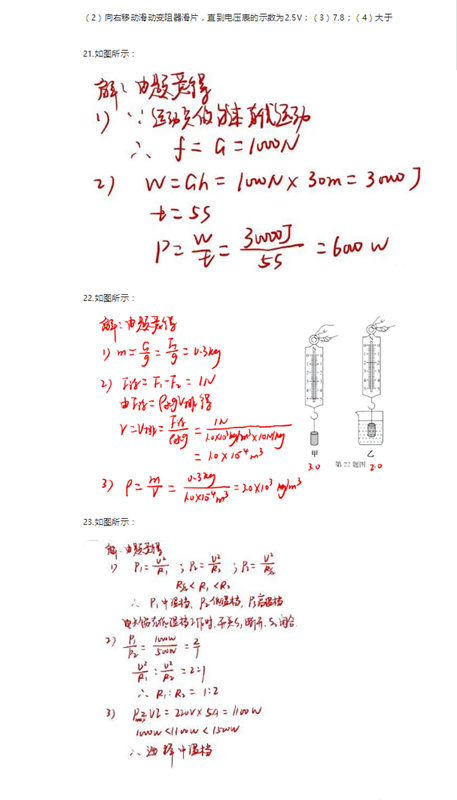 （2）向右移动滑动变阻器滑片，直到电压表的示数为2.5V；（3）7.8；（4）大于
21.如图所示：
解：由题意得
1) ∵运动员做匀速直线运动
∴ f = G = 1000N
2) W = Gh = 1000N × 30m = 30000J
t = 5S
P = W/t = 30000J/5S = 6000W
22.如图所示：
解：由题意得
1) m = G/g = F₁/g = 0.3kg
2) F浮 = F₁ - F₂ = 1N
由F浮 = ρ水gV排 得
V = V排 = F浮/ρ水g = 1N/1.0×10³kg/m³×10N/kg
= 1.0×10⁻⁴m³
3) ρ = m/V = 0.3kg/1.0×10⁻⁴m³ = 3.0×10³ kg/m³
甲 乙
3.0 第22题图 2.0
23.如图所示：
解：由题意得
1) P₁ = U²/R₁ ; P₂ = U²/R₂ ; P₃ = U²/R总
R总 < R₁ < R₂
∴ P₁中温档，P₂低温档，P₃高温档
2) P₁/P₂ = 1000W/500W = 2/1
U²/R₁ : U²/R₂ = 2:1
∴ R₁:R₂ = 1:2
3) = UI = 220V × 5A = 1100W
1000W < 1100W < 1500W
∴ 选择中温档